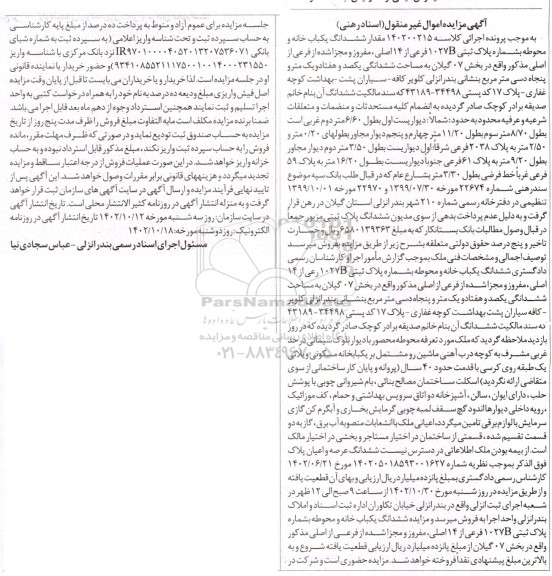 آگهی مزایده اموال غیر منقول (اسناد رهنی)
به موجب پرونده اجرائی کلاسه ۱۴۰۲۰۰۲۱۵ مقدار ششدانگ یکباب خانه و
محوطه بشماره پلاک ثبتی ۱۰۲۷B فرعی از ۱۴ اصلی ، مفروز و مجزا شده از فرعی از
اصلی مذکور واقع در بخش ۰۷ گیلان به مساحت ششدانگی یکصد و هفتاد و یک متر و
پنجاه دسی متر مربع بنشانی بندرانزلی کلویر کافه - سیاران پشت - بهداشت کوچه
غفاری - پلاک ۱۷ کد پستی ۳۴۴۹۸-۴۳۱۸۹ که سند مالکیت ششدانگ آن بنام خانم
صدیقه برادر کوچک صادر گردیده به انضمام کلیه مستحدثات و منضمات و متعلقات
شرعیه و عرفیه محدود به حدود: شمالا: دیواریست اول بطول ۶/۶۰ متر دوم غربی است
بطول ۸/۷۰ متر سوم بطول ۱۱/۲۰ متر چهارم و پنجم دیوار مجاور بطولهای ۰/۲۰ متر و
۲/۵۰ متر به پلاک ۲۰۳۸ فرعی شرقا: اول دیواریست بطول ۳/۵۰ متر دوم دیوار مجاور
بطول ۹/۲۰ متر به پلاک ۶۱ فرعی جنوبا دیواریست بطول ۱۶/۲۰ متر به پلاک ۵۹
فرعی غربا خط فرضی بطول ۳/۳۰ متر بشارع عام که در قبال طلب بانک سپه موضوع
سند رهنی شماره ۲۲۶۷۴ مورخه ۱۳۹۹/۰۷/۳۰ و ۲۲۹۷۰ مورخه ۱۳۹۹/۱۰/۰۱
تنظیمی در دفترخانه رسمی شماره ۲۱۰ شهر بندر انزلی استان گیلان در رهن قرار
گرفت و به دلیل عدم پرداخت بدهی از سوی مدیون ششدانگ پلاک ثبتی مزبور جمعا
در قبال وصول مطالبات بانک بستانکار که به مبلغ ۶۵۸۰۱۳۹۳۶۳ ریال و خسارت
تاخیر و پنج درصد حقوق دولتی متعلقه بشرح زیر از طریق مزایده بفروش میرسد
توصیف اجمالی و مشخصات فنی ملک بموجب گزارش مأمور اجرا و کارشناسان رسمی
دادگستری ششدانگ یکباب خانه و محوطه بشماره پلاک ثبتی ۱۰۲۷B رعی از ۱۴
اصلی ، مفروز و مجزا شده از فرعی از اصلی مذکور واقع در بخش ۰۷ گیلان به مساحت
ششدانگی یکصد و هفتاد و یک متر و پنجاه دسی متر مربع بنشانی بندرانزلی کلویر
- کافه سیاران پشت بهداشت کوچه غفاری - پلاک ۱۷ کد پستی ۳۴۴۹۸-۴۳۱۸۹
که سند مالکیت ششدانگ آن بنام خانم صدیقه برادر کوچک صادر گردیده که در روز
بازدید ملاحظه گردید که ملک مورد تعرفه محوطه محصور با دیوار بلوک سیمانی در حد
غربی مشرف به کوچه درب آهنی ماشین رو مشتمل بر یکبابخانه مسکونی ویلائی
یک طبقه روی کرسی با قدمت حدود ۴۰ سال (پروانه و پایان کار ساختمانی از سوی
متقاضی ارائه نگردید) اسکلت ساختمان مصالح بنائی ، بام شیروانی چوبی با پوشش
حلب ، دارای ایوان ، سالن ، آشپزخانه دو اتاق سرویس بهداشتی و حمام ، کف موزائیک
، رویه داخلی دیوارها اندود گچ سقف لمبه چوبی گرمایش بخاری و آبگرم کن گازی
سرمایش با لوازم برقی تامین میگردد، اعیانی ملک با انشعابات منصوبه آب برق ، گاز به دو
قسمت تقسیم شده ، قسمتی از ساختمان در اختیار مستاجر و بخشی در اختیار مالک
است. از بیمه بودن ملک اطلاعاتی در دسترس نیست ششدانگ عرصه و اعیان پلاک
فوق الذکر بموجب نظریه شماره ۱۴۰۲۰۵۰۱۸۵۹۳۰۰۱۶۲۷ مورخ ۱۴۰۲/۰۶/۲۱
کارشناس رسمی دادگستری بمبلغ پانزده میلیارد ریال ارزیابی و بهای آن قطعیت یافته
و از طریق مزایده در روز شنبه مورخ ۱۴۰۲/۱۰/۳۰ از ساعت ۹ صبح الی ۱۲ ظهر در
شعبه اجرای ثبت انزلی واقع در بندرانزلی خیابان تکاوران اداره ثبت اسناد و املاک
بندرانزلی واحد اجرا به فروش میرسد و مزایده ششدانگ یکباب خانه و محوطه بشماره
پلاک ثبتی ۱۰۲۷B فرعی از ۱۴ اصلی ، مفروز و مجزا شده از فرعی از اصلی مذکور
واقع در بخش ۰۷ گیلان از مبلغ پانزده میلیارد ریال ارزیابی قطعیت یافته شروع و به
بالاترین مبلغ پیشنهادی نقدا فروخته خواهد شد. مزایده حضوری است و شرکت در
جلسه مزایده برای عموم آزاد و منوط به پرداخت ده درصد از مبلغ پایه کارشناسی
به حساب سپرده ثبت و تحت شناسه واریز اعلامی ( به سپرده ثبت به شماره شبای
بانکی IR۹۷۰۱۰۰۰۰۴۰۵۲۰۱۳۲۰۷۵۳۶۰۷۱ نزد بانک مرکزی با شناسه واریز
۹۳۴۱۰۸۵۵۲۱۱۱۷۵۰۰۱۰۰۱۴۰۰۰۲۳۱۵۵۰) و حضور خریدار یا نماینده قانونی
او در جلسه مزایده است. لذا خریدار و یا خریداران می بایست تا قبل از پایان وقت مزایده
اصل فیش واریزی مبلغ ودیعه ده درصد به نام خود را به همراه درخواست کتبی به واحد
اجرا تسلیم و ثبت نمایند همچنین استرداد وجوه از دهم ماه بعد قابل اجرا می باشد.
ضمنا برنده مزایده مکلف است مابه التفاوت مبلغ فروش را ظرف مدت پنج روز از تاریخ
مزایده به حساب صندوق ثبت تودیع نماید و در صورتی که ظرف مهلت مقرر، مانده
فروش را به حساب سپرده ثبت واریز نکند، مبلغ مذکور قابل استرداد نبوده و به حساب
خزانه واریز خواهد شد. در این صورت عملیات فروش از درجه اعتبار ساقط و مزایده
تجدید میگردد و هزینه های قانونی برابر مقررات وصول خواهد شد. این آگهی پس از
تایید نهایی فرآیند مزایده و ارسال آگهی در سایت آگهی های سازمان ثبت قرار خواهد
گرفت و به منزله انتشار آگهی در روزنامه کثیر الانتشار محلی است. تاریخ انتشار آگهی
در سایت سازمان: روز سه شنبه مورخه ۱۴۰۲/۱۰/۱۲ تاریخ انتشار آگهی در روزنامه
الکترونیک: روز دوشنبه مورخه: ۱۴۰۲/۱۰/۱۸
مسئول اجرای اسناد رسمی بندر انزلی - عباس سجادی نیا
ParsNamadData
۰۲۱-۸۸۳۴۹۶۷۰